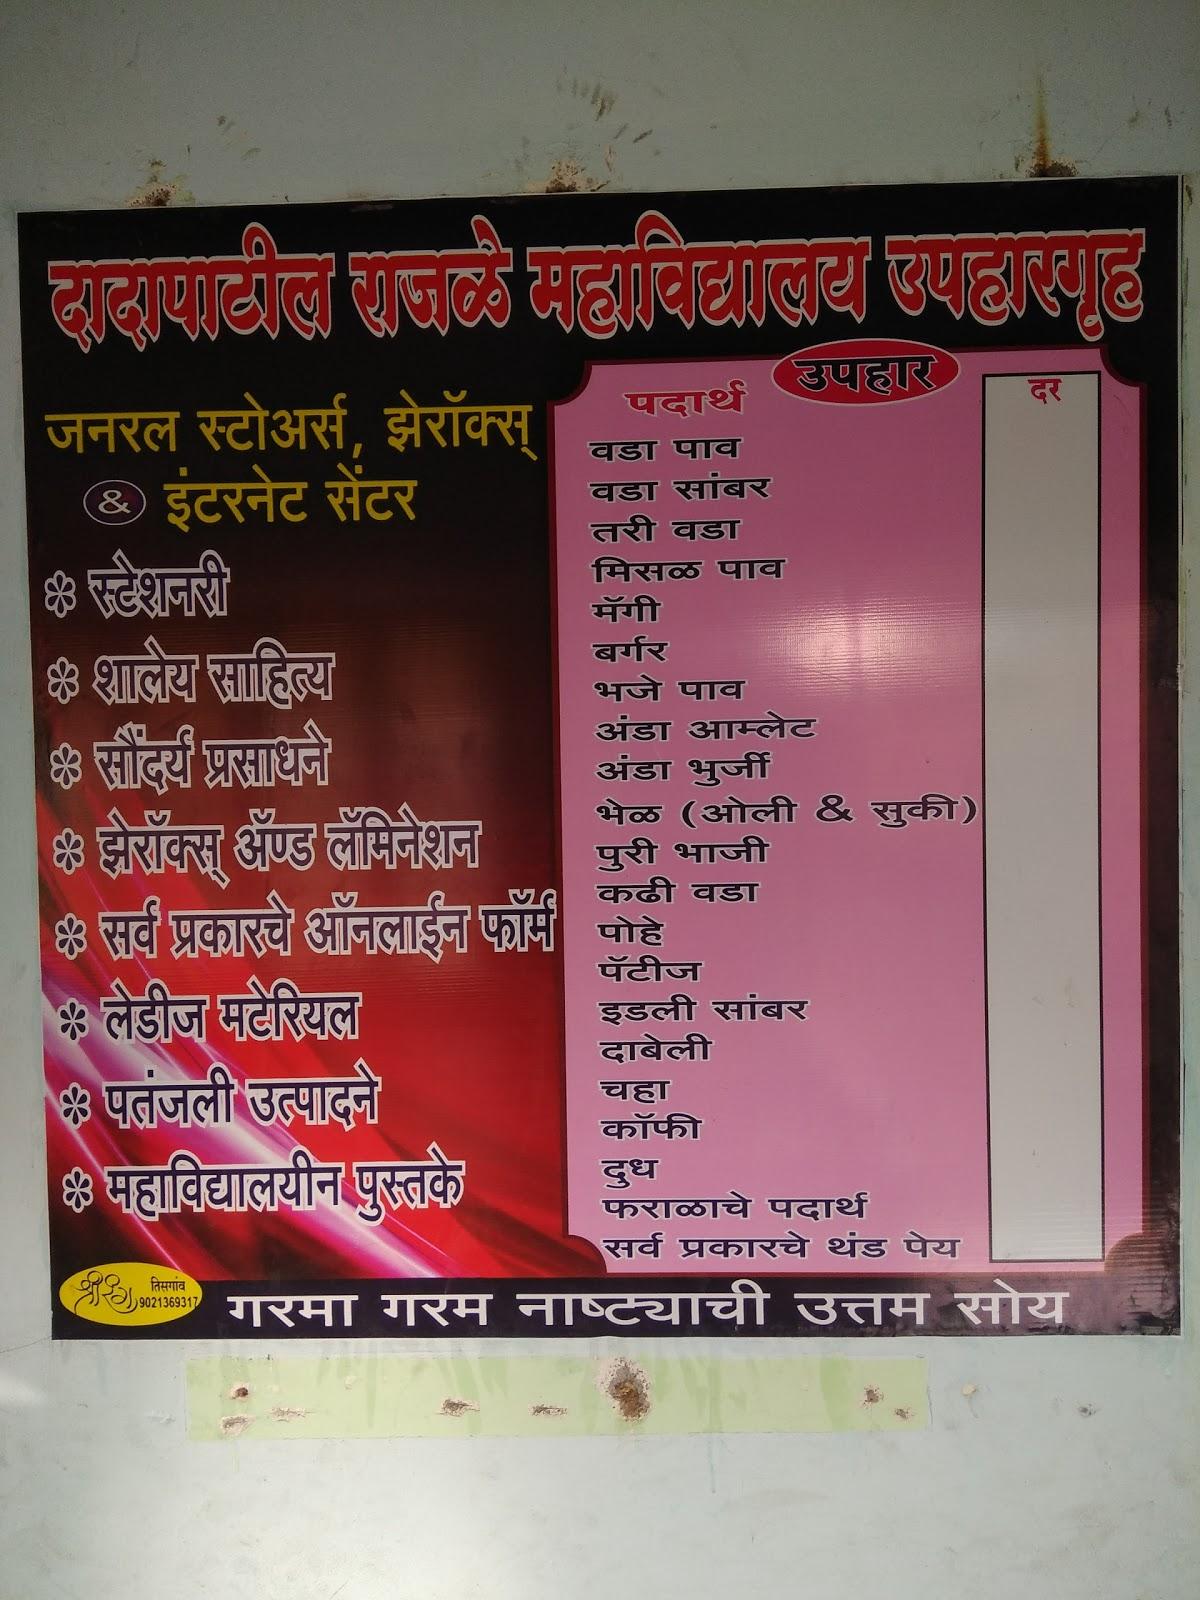 दादापाटील राजळे महाविद्यालय उपहारगृह
जनरल स्टोअर्स, झेरॉक्स्
& इंटरनेट सेंटर
स्टेशनरी
शालेय साहित्य
सौंदर्य प्रसाधने
झेरॉक्स् ॲण्ड लॅमिनेशन
सर्व प्रकारचे ऑनलाईन फॉर्म
लेडीज मटेरियल
पतंजली उत्पादने
महाविद्यालयीन पुस्तके
उपहार
पदार्थ दर
वडा पाव
वडा सांबर
तरी वडा
मिसळ पाव
मॅगी
बर्गर
भजे पाव
अंडा आम्लेट
अंडा भुर्जी
भेळ (ओली & सुकी)
पुरी भाजी
कढी वडा
पोहे
पॅटीज
इडली सांबर
दाबेली
चहा
कॉफी
दुध
फराळाचे पदार्थ
सर्व प्रकारचे थंड पेय
तिसगांव
9021369317
गरमा गरम नाष्ट्याची उत्तम सोय